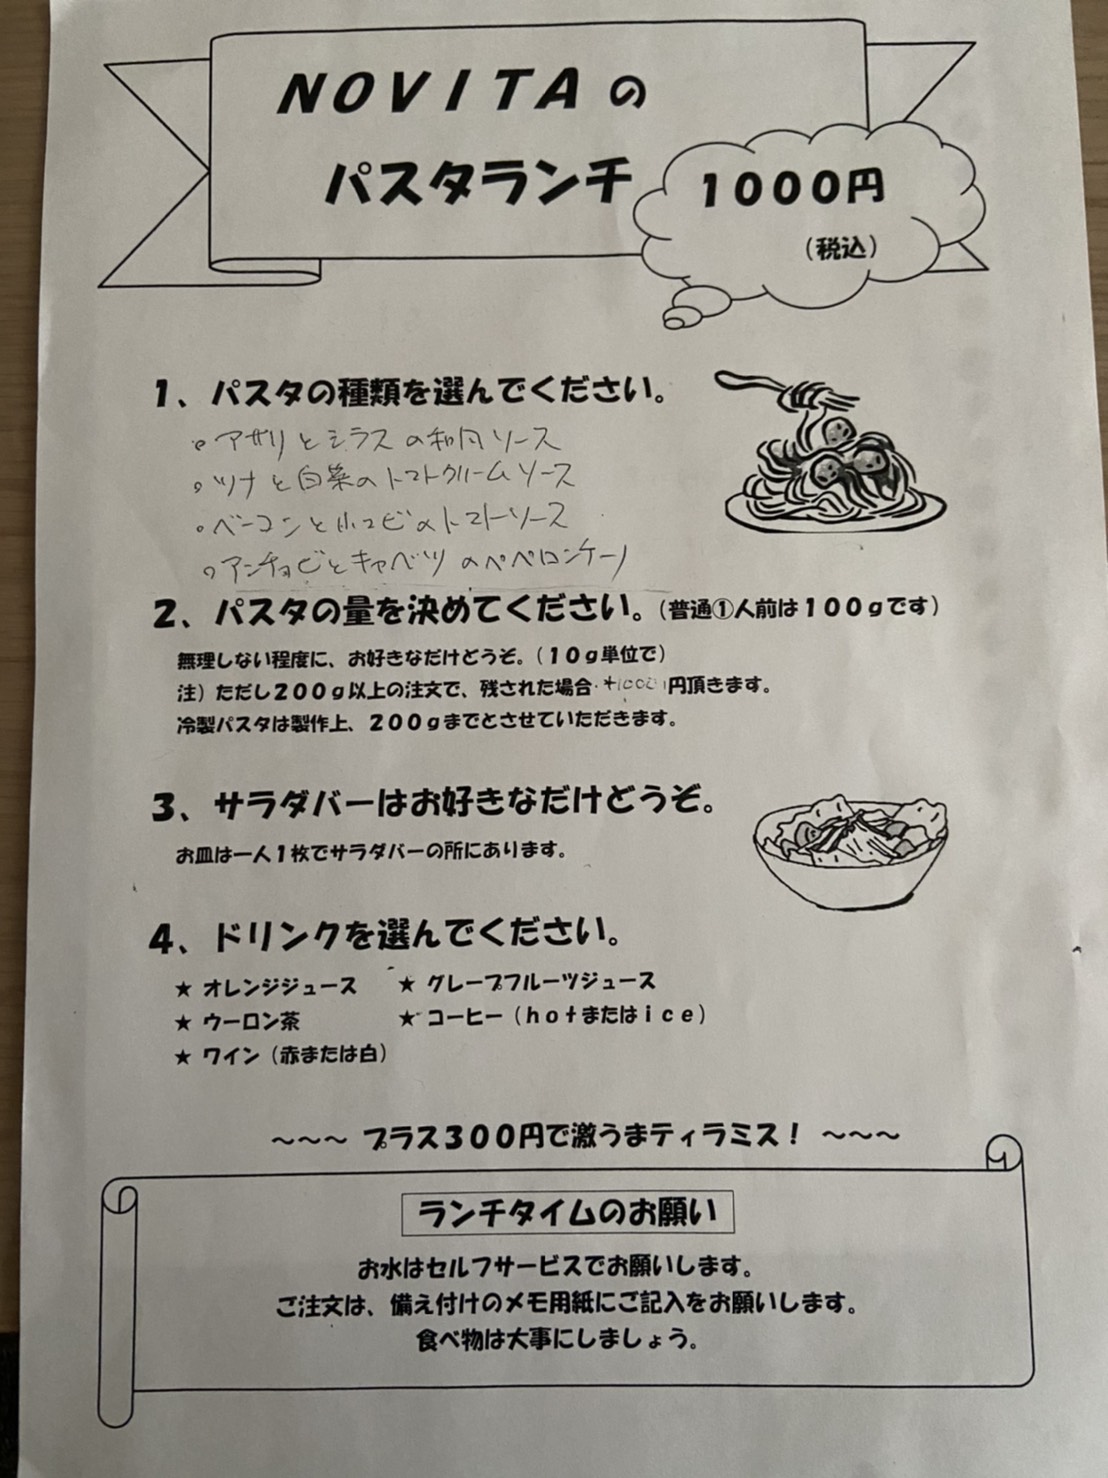 NOVITAの
パスタランチ
1000円
(税込)
1、パスタの種類を選んでください。
・アサリとシラスの和風ソース
・ツナと白菜のトマトクリームソース
・ベーコンと小エビのトマトソース
・アンチョビとキャベツのペペロンチーノ
2、パスタの量を決めてください。(普通①人前は100gです)
無理しない程度に、お好きなだけどうぞ。(10g単位で)
注)ただし200g以上の注文で、残された場合+1000円頂きます。
冷製パスタは製作上、200gまでとさせていただきます。
3、サラダバーはお好きなだけどうぞ。
お皿は一人1枚でサラダバーの所にあります。
4、ドリンクを選んでください。
★ オレンジジュース ★ グレープフルーツジュース
★ ウーロン茶 ★ コーヒー(hotまたはice)
★ ワイン(赤または白)
~~~ プラス300円で激うまティラミス! ~~~
ランチタイムのお願い
お水はセルフサービスでお願いします。
ご注文は、備え付けのメモ用紙にご記入をお願いします。
食べ物は大事にしましょう。